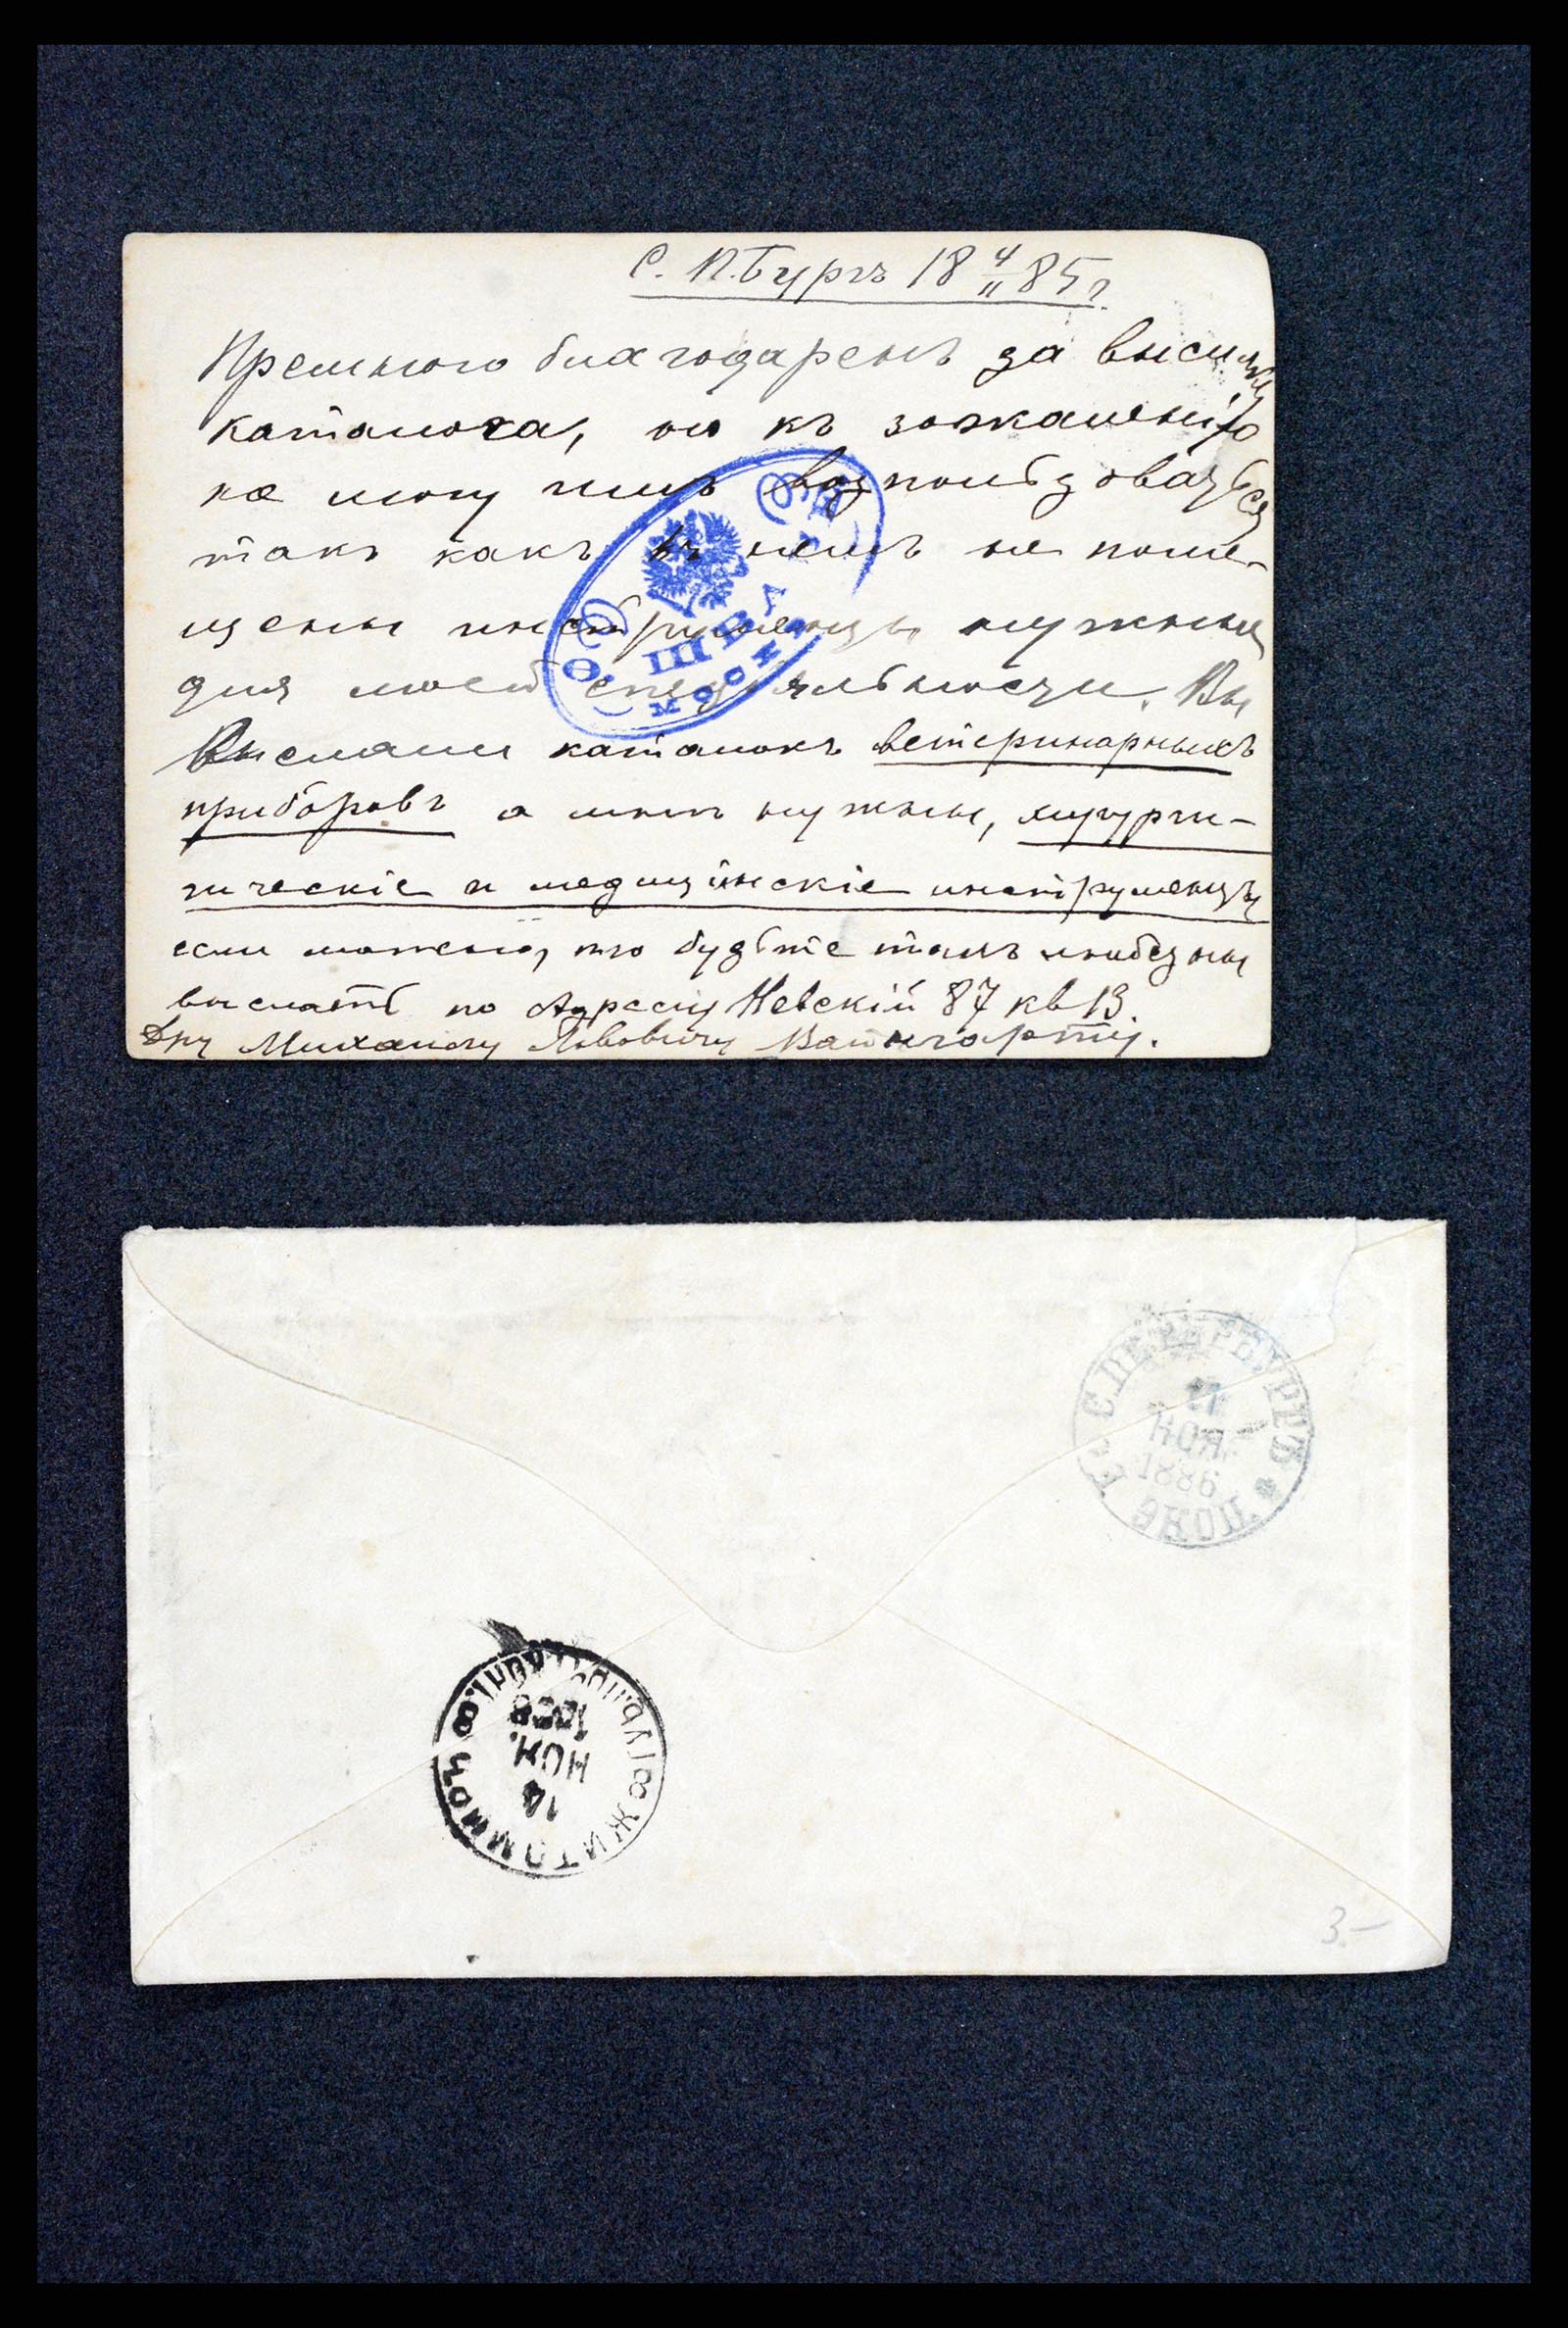 С. П.Бургъ 18 4/11 85 г.
Премного благодаренъ за высылку
каталога, но къ сожаленію
не могу имъ возпользоваться
такъ какъ въ немъ не поме-
щены инструменты нужные
для моей специяльности. Вы
Выслали каталокъ ветеринарныхъ
приборовъ а мне нужны, хирурги-
ческіе и медицинскіе инструменты
если можно, то будьте такъ любезны
выслать по Адресу Невскій 87 кв 13.
Дру Михаилу Львовичу Вайнгарту.
ШВАБЕ
МОСКВА
С.ПЕТЕРБУРГЪ
17
НОЯ.
1886
ЭКСП.
ЖИТОМИРЪ
14
НОЯ.
3.-